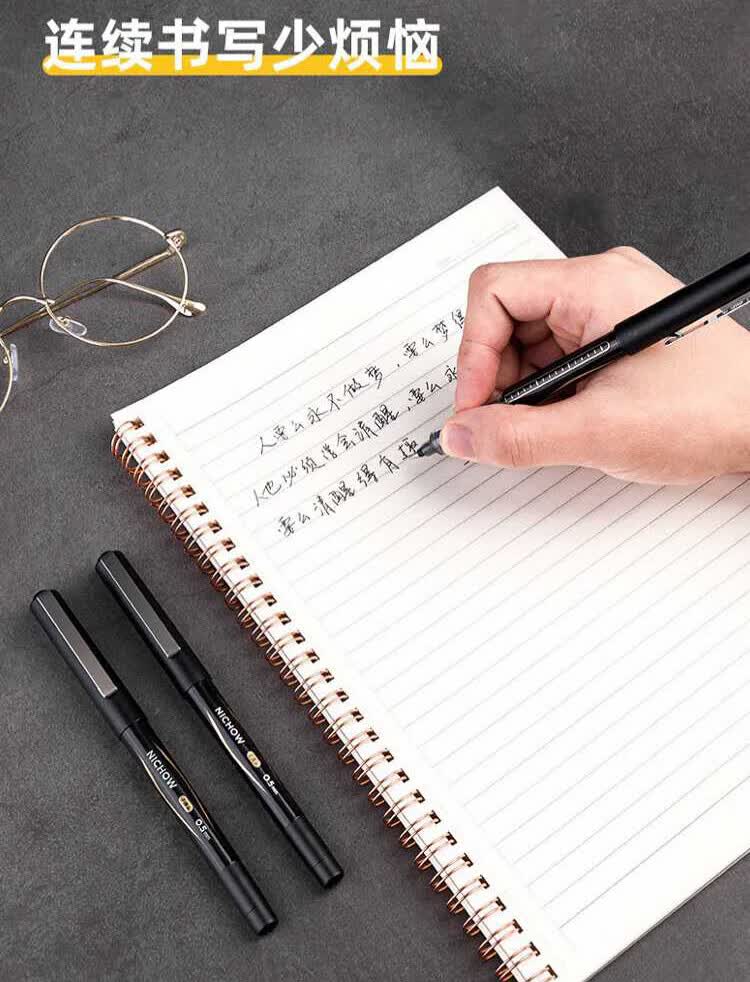 连续书写少烦恼
人要么永不做梦，要么梦得
人也必须学会清醒，要么永
要么清醒得有趣
NICHOW
0.5mm
NICHOW
0.5mm